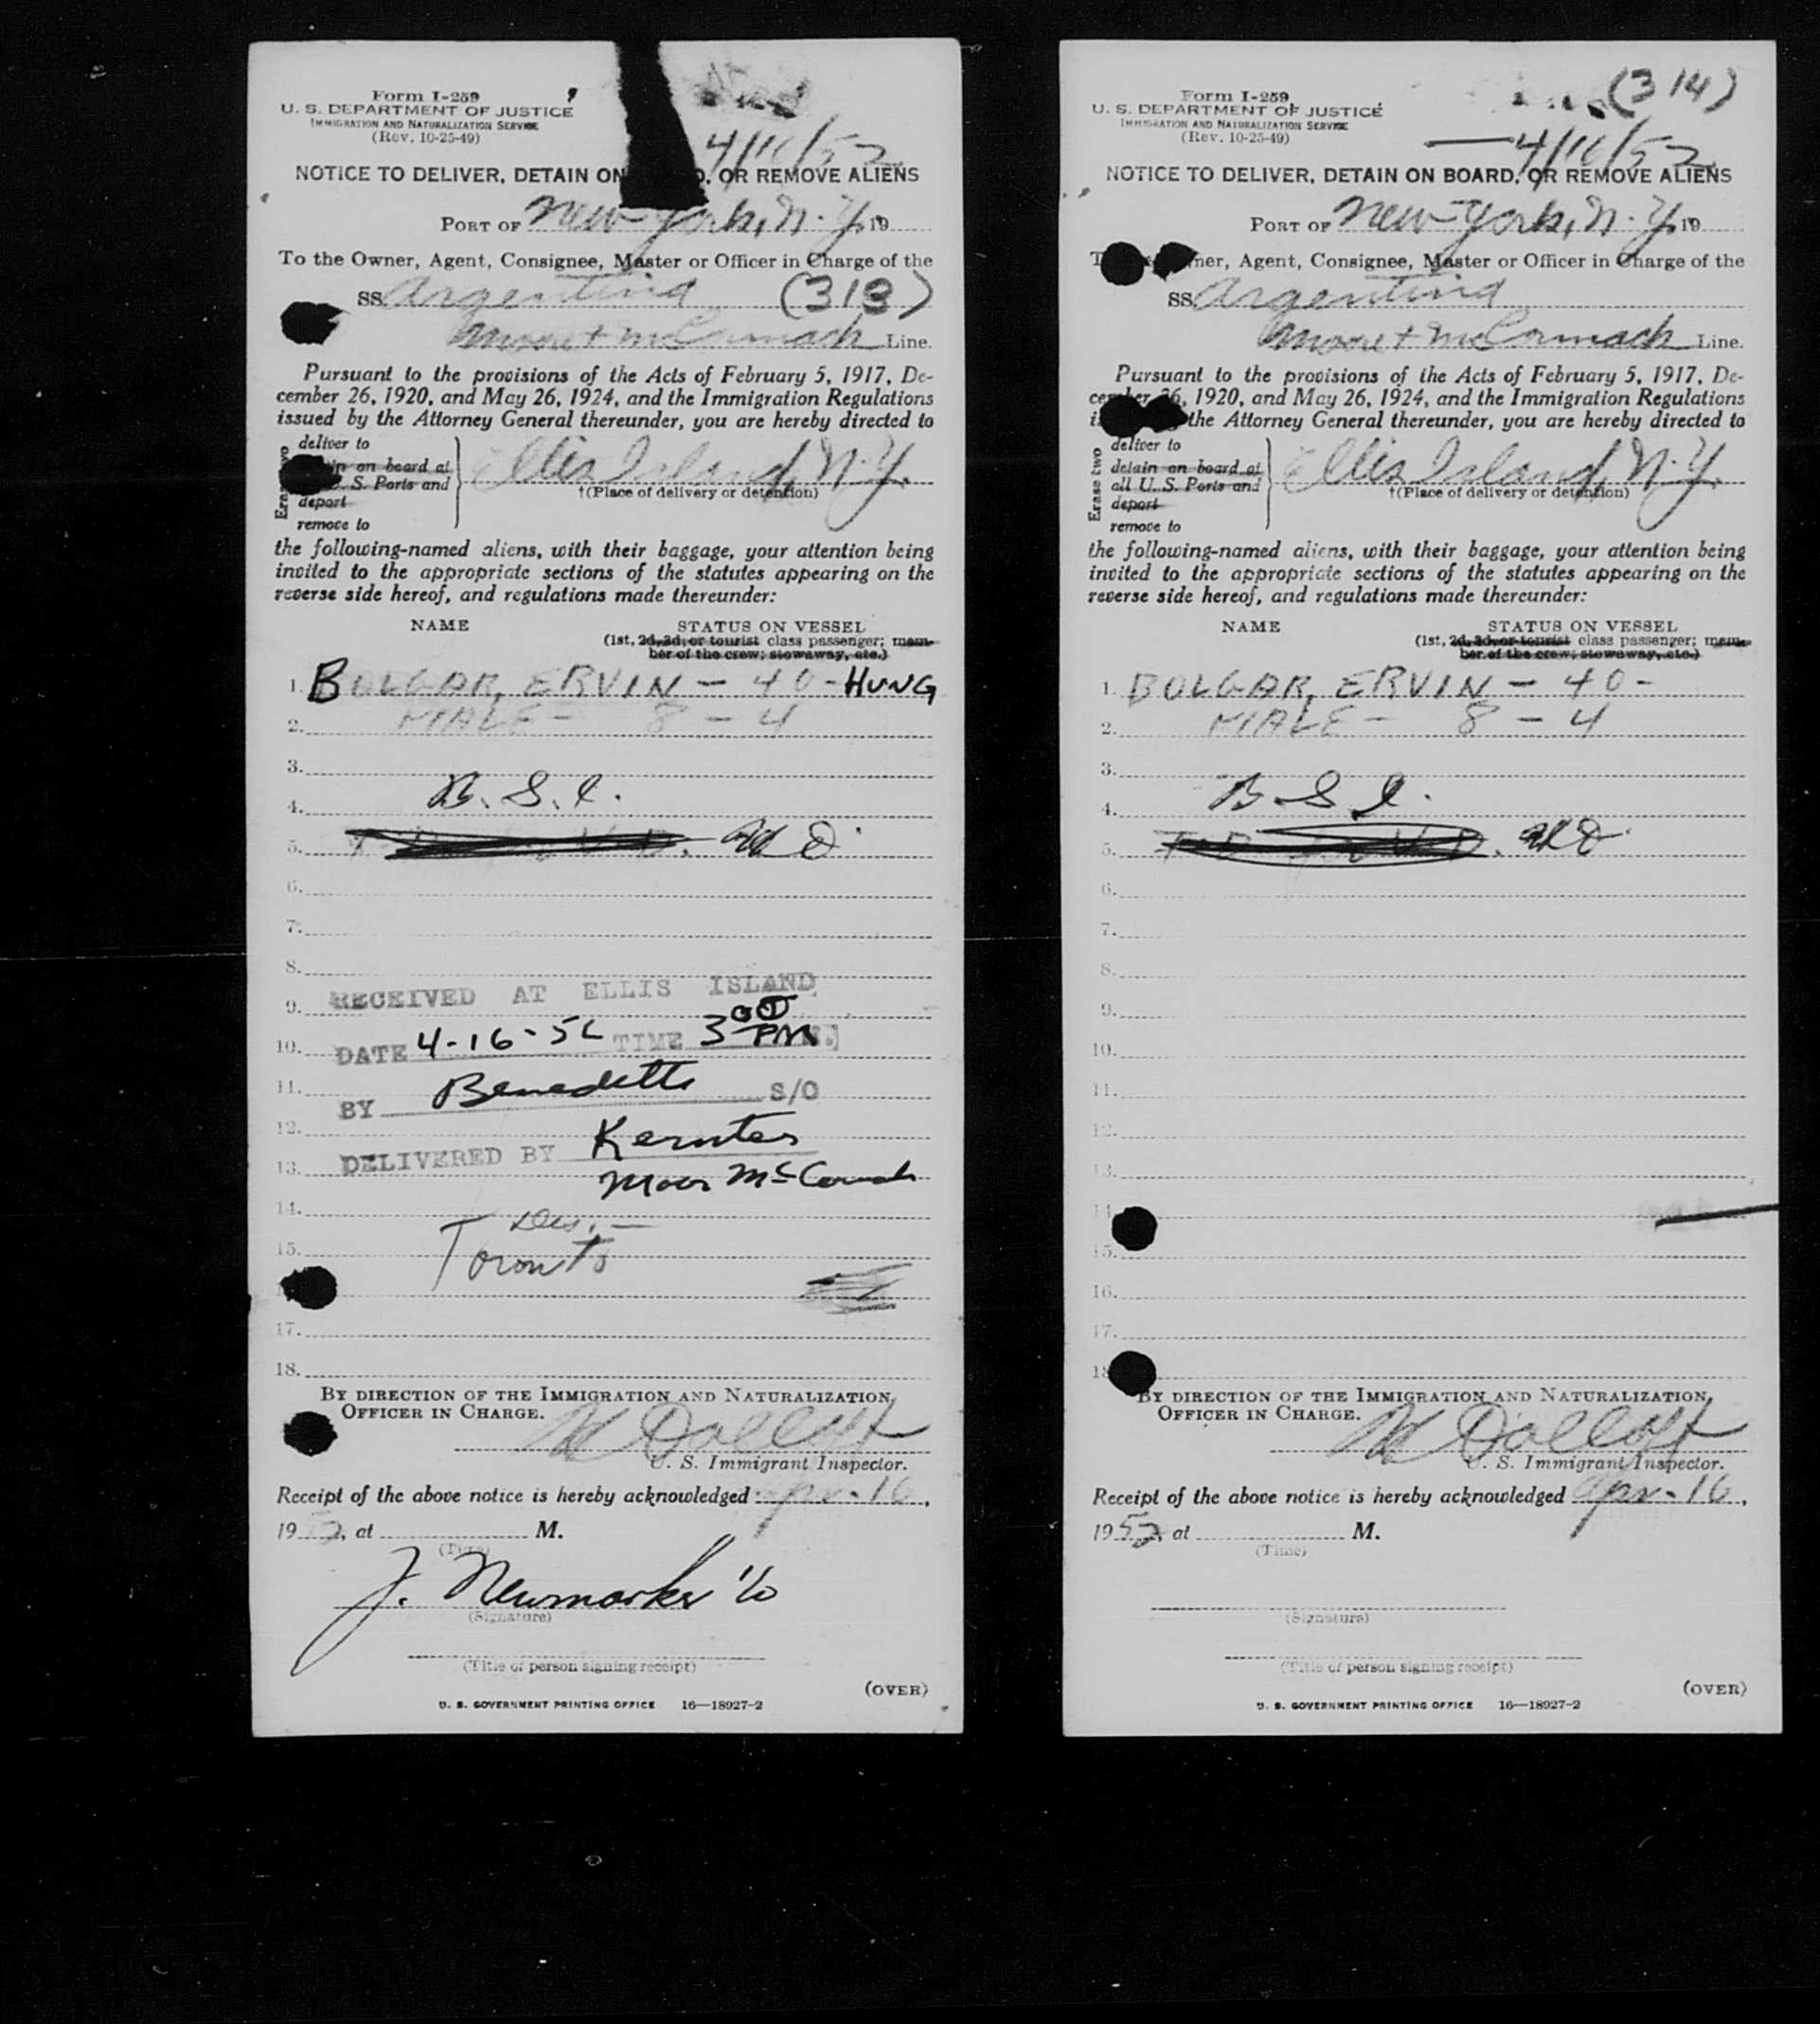 Form I-259
U. S. DEPARTMENT OF JUSTICE
IMMIGRATION AND NATURALIZATION SERVICE
(Rev. 10-25-49)
4/16/52
NOTICE TO DELIVER, DETAIN ON OR REMOVE ALIENS
PORT OF New York, N. Y. 19
To the Owner, Agent, Consignee, Master or Officer in Charge of the
SS Argentina (313)
Moore & McCormack Line.
Pursuant to the provisions of the Acts of February 5, 1917, De-
cember 26, 1920, and May 26, 1924, and the Immigration Regulations
issued by the Attorney General thereunder, you are hereby directed to
deliver to
on board at
S. Ports and
deport
remove to
Ellis Island, N. Y.
†(Place of delivery or detention)
the following-named aliens, with their baggage, your attention being
invited to the appropriate sections of the statutes appearing on the
reverse side hereof, and regulations made thereunder:
NAME STATUS ON VESSEL
(1st, 2d, 3d, or tourist class passenger; mem-
ber of the crew; stowaway, etc.)
1. BOLGAR, ERVIN - 40 - HUNG
2. MALE - 8 - 4
3.
4. B. S. I.
5. WD
6.
7.
8.
9. RECEIVED AT ELLIS ISLAND
10. DATE 4-16-52 TIME 3 00 PM
11. BY Benedetti S/O
12.
13. DELIVERED BY
Moor McCormack
14. Des. -
15. Toronto
17.
18.
BY DIRECTION OF THE IMMIGRATION AND NATURALIZATION
OFFICER IN CHARGE.
U. S. Immigrant Inspector.
Receipt of the above notice is hereby acknowledged Apr. 16,
1952, at M.
(Time)
J. Newmarker
(Signature)
(Title of person signing receipt)
(OVER)
U. S. GOVERNMENT PRINTING OFFICE 16—18927-2
(314)
Form I-259
U. S. DEPARTMENT OF JUSTICE
IMMIGRATION AND NATURALIZATION SERVICE
(Rev. 10-25-49)
4/16/52
NOTICE TO DELIVER, DETAIN ON BOARD, OR REMOVE ALIENS
PORT OF New York, N. Y. 19
To ner, Agent, Consignee, Master or Officer in Charge of the
SS Argentina
Moore & McCormack Line.
Pursuant to the provisions of the Acts of February 5, 1917, De-
cember 26, 1920, and May 26, 1924, and the Immigration Regulations
the Attorney General thereunder, you are hereby directed to
Erase two
deliver to
detain on board at
all U. S. Ports and
deport
remove to
Ellis Island, N. Y.
†(Place of delivery or detention)
the following-named aliens, with their baggage, your attention being
invited to the appropriate sections of the statutes appearing on the
reverse side hereof, and regulations made thereunder:
NAME STATUS ON VESSEL
(1st, 2d, 3d, or tourist class passenger; mem-
ber of the crew; stowaway, etc.)
1. BOLGAR, ERVIN - 40 -
2. MALE - 8 - 4
3.
4. B S I.
5. WD
6.
7.
8.
9.
10.
11.
12.
13.
14
15.
16.
17.
18
BY DIRECTION OF THE IMMIGRATION AND NATURALIZATION
OFFICER IN CHARGE.
U. S. Immigrant Inspector.
Receipt of the above notice is hereby acknowledged Apr. 16,
1952, at M.
(Time)
(Signature)
(Title of person signing receipt)
(OVER)
U. S. GOVERNMENT PRINTING OFFICE 16—18927-2